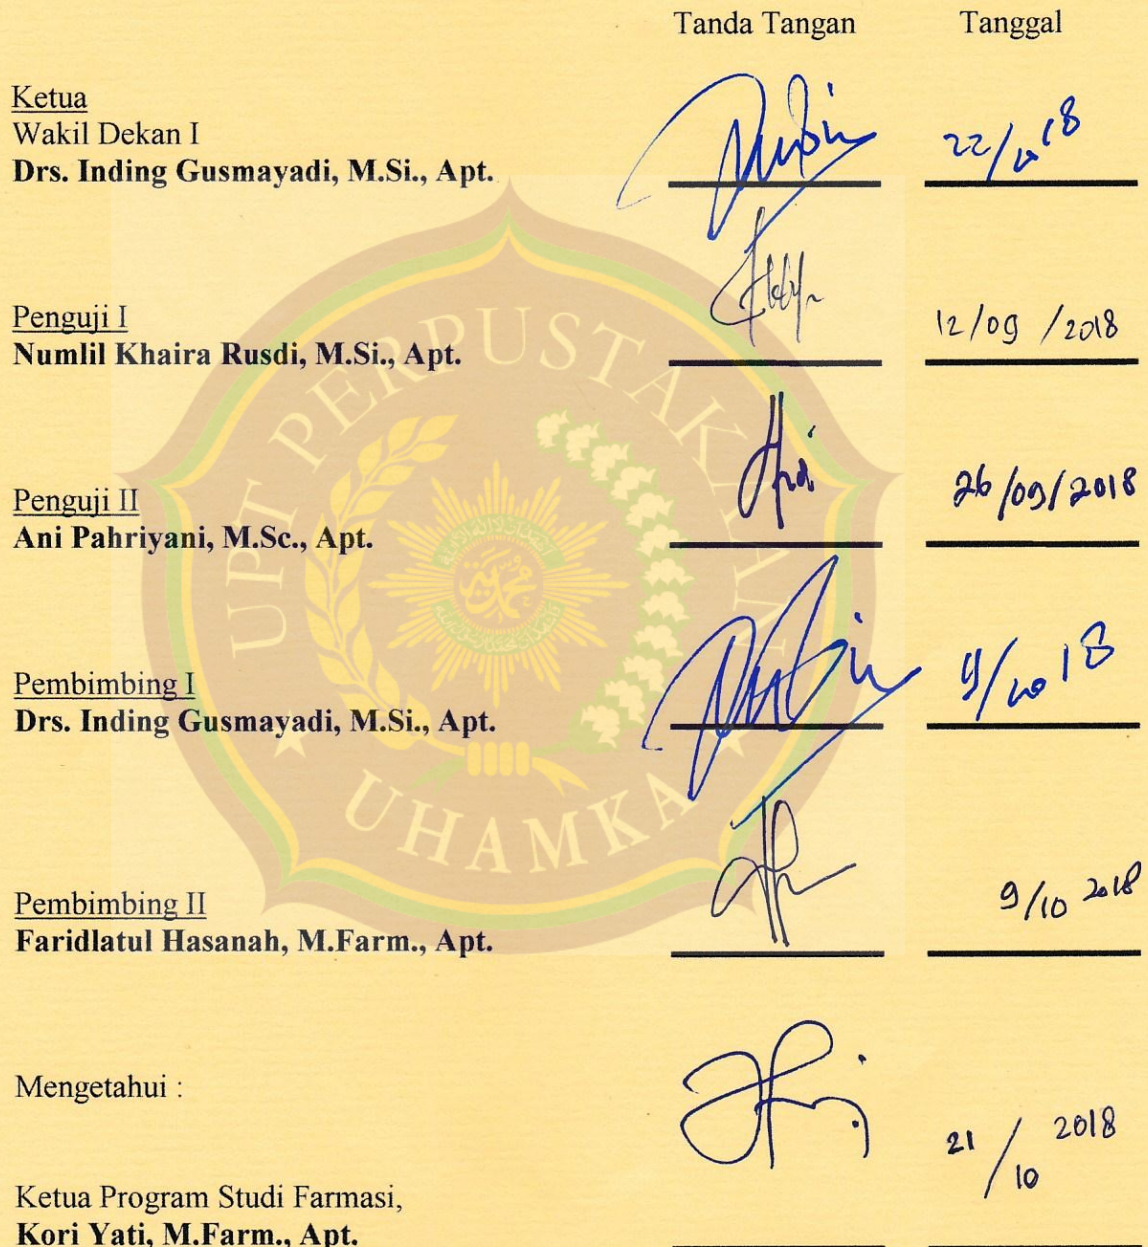 Tanda Tangan Tanggal
Ketua
Wakil Dekan I
Drs. Inding Gusmayadi, M.Si., Apt.
22/10 18
Penguji I
Numlil Khaira Rusdi, M.Si., Apt.
12/09 /2018
Penguji II
Ani Pahriyani, M.Sc., Apt.
26/09/2018
Pembimbing I
Drs. Inding Gusmayadi, M.Si., Apt.
9/10 18
Pembimbing II
Faridlatul Hasanah, M.Farm., Apt.
9/10 2018
Mengetahui :
21/10 2018
Ketua Program Studi Farmasi,
Kori Yati, M.Farm., Apt.
UPT PERPUSTAKAAN
UHAMKA